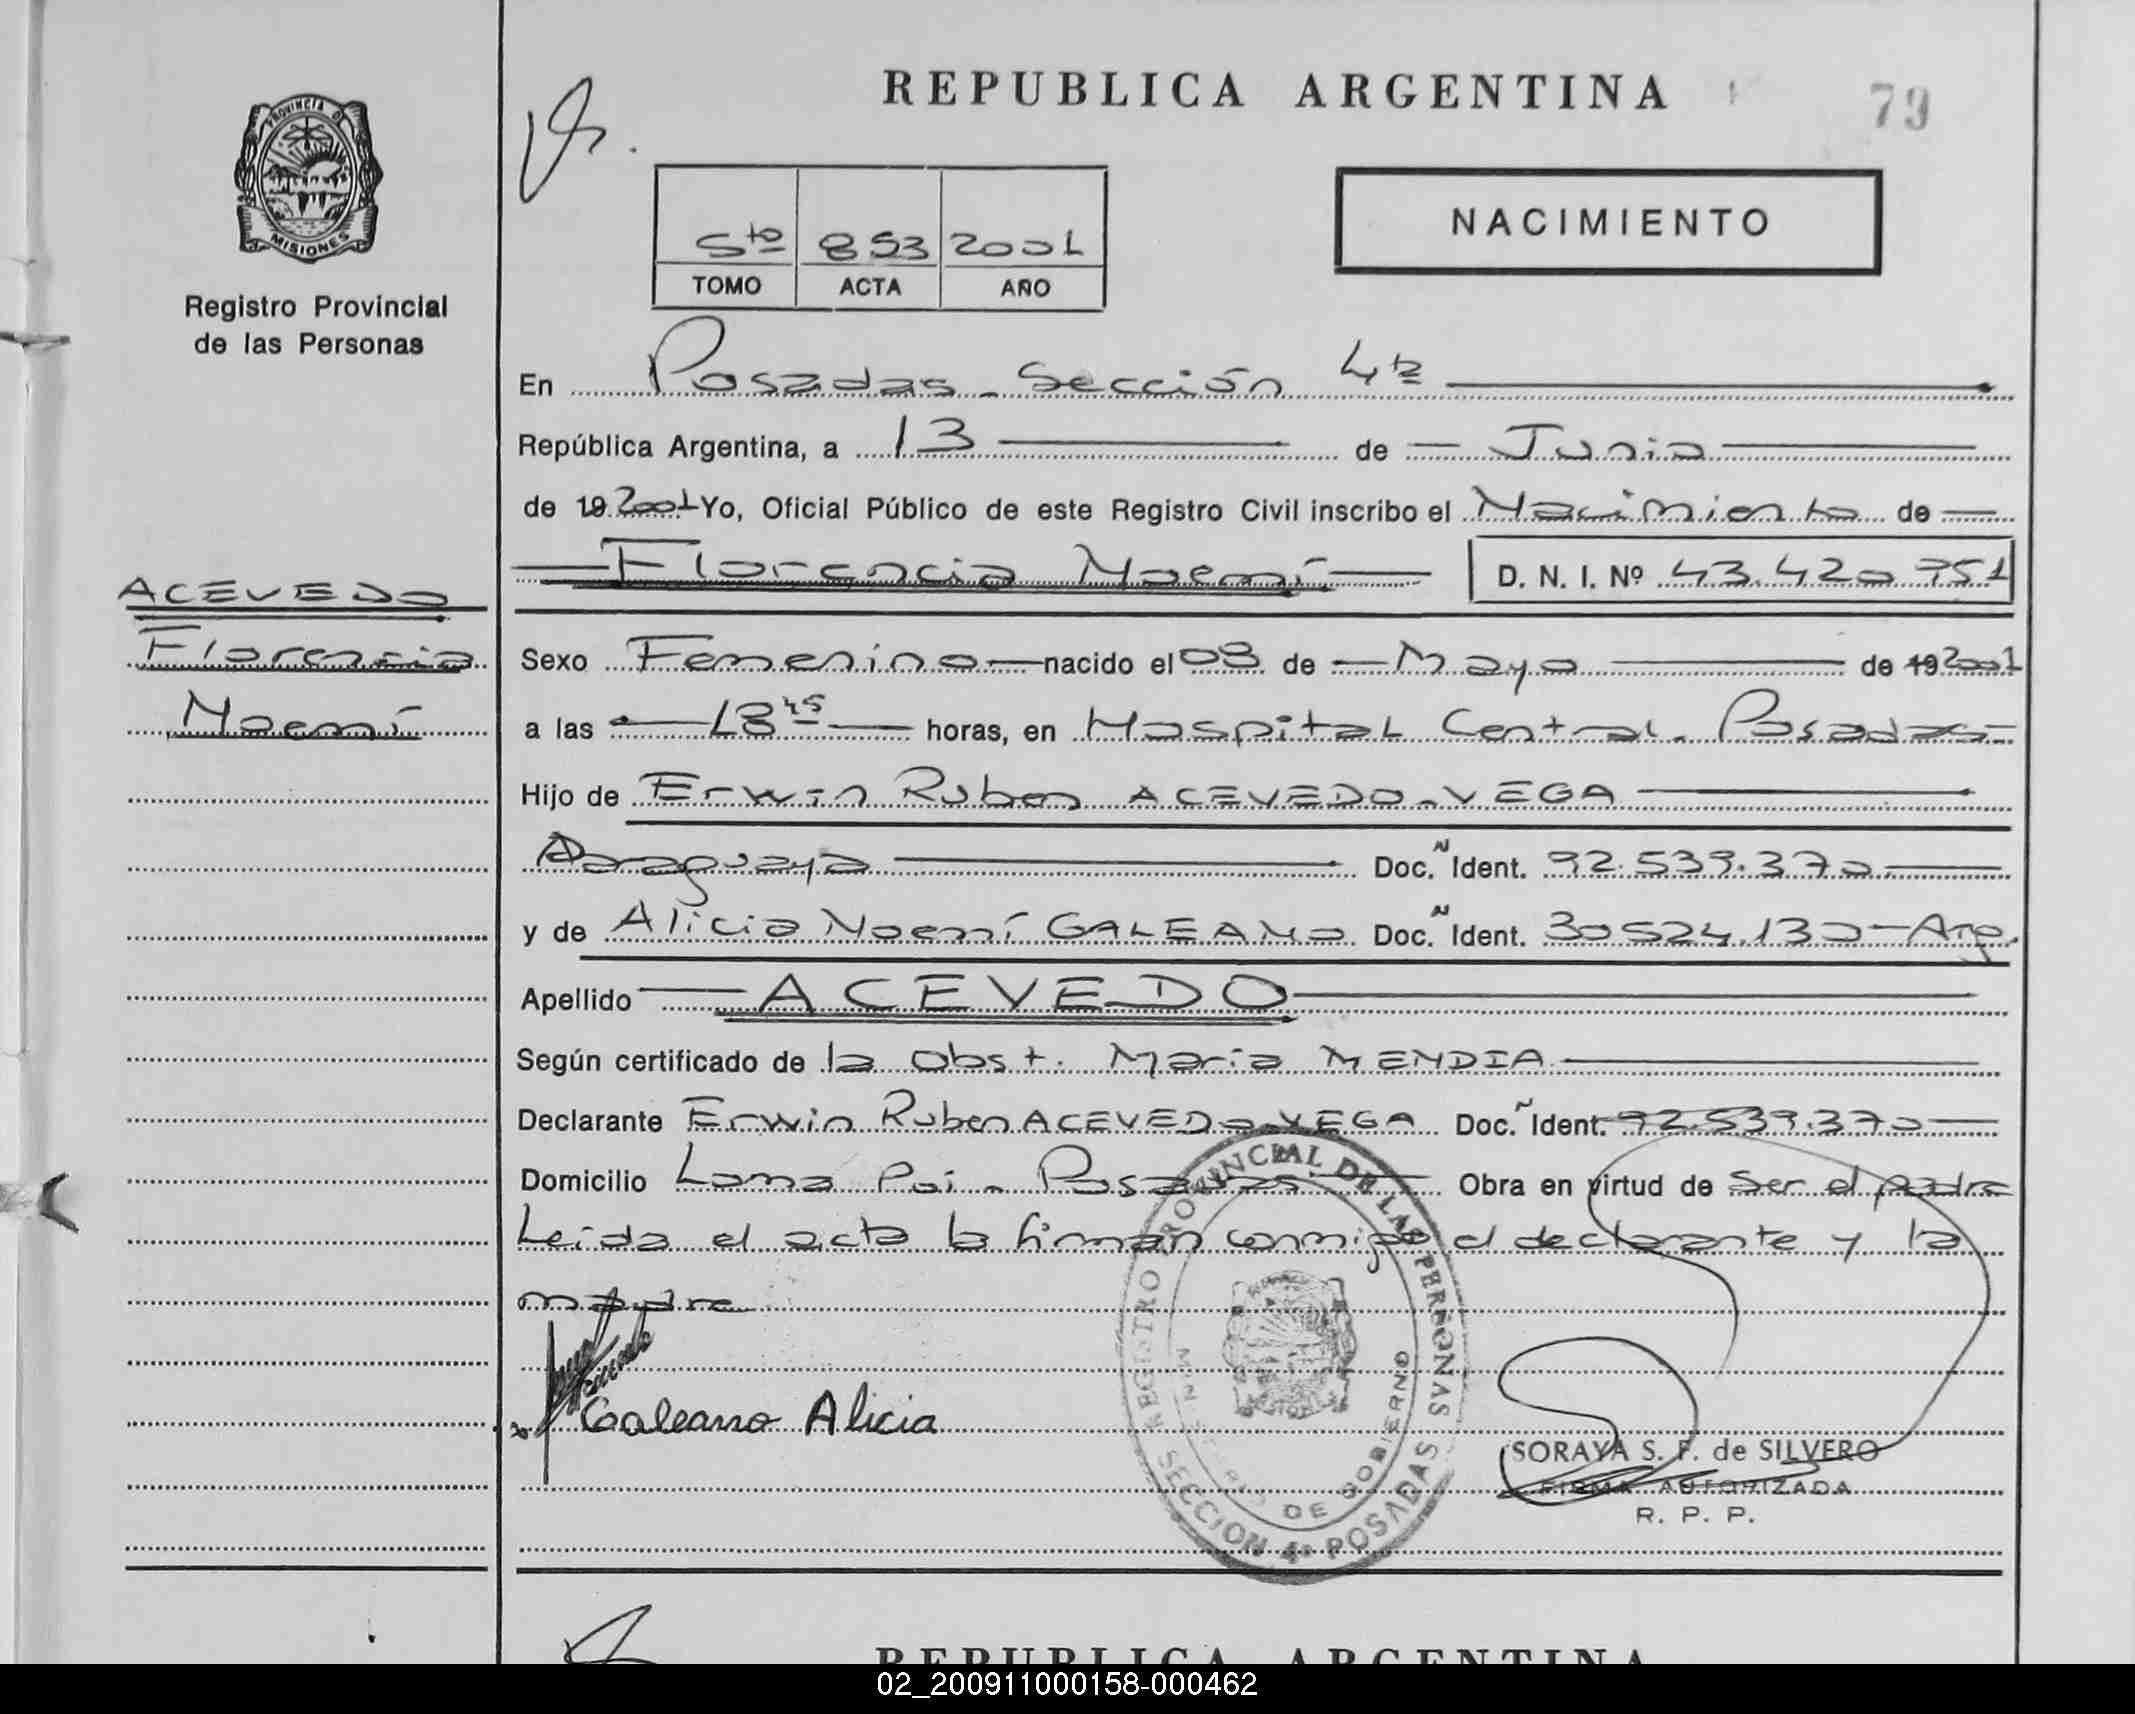 REPUBLICA ARGENTINA
79
PROVINCIA DE
MISIONES
Registro Provincial
de las Personas
5to 853 2001
TOMO ACTA AÑO
NACIMIENTO
En Posadas - Sección 4ta
República Argentina, a 13 de Junio
de 19 2001 Yo, Oficial Público de este Registro Civil inscribo el Nacimiento de
Florencia Noemí D. N. I. Nº 43.420 751
ACEVEDO
Florencia
Noemí
Sexo Femenino nacido el 03 de Mayo de 19 2001
a las 18 45 horas, en Hospital Central - Posadas
Hijo de Erwin Ruben ACEVEDO - VEGA
Paraguayo Doc. Ñ Ident. 92.539.370
y de Alicia Noemí GALEANO Doc. Ñ Ident. 30524.130 - Arg.
Apellido ACEVEDO
Según certificado de la Obst. Maria MENDIA
Declarante Erwin Ruben ACEVEDO - VEGA Doc. Ñ Ident. 92.539.370
Domicilio Loma Poi - Posadas Obra en virtud de Ser el padre
Leida el acta la firman conmigo el declarante y la
madre
Galeano Alicia
REGISTRO PROVINCIAL DE LAS PERSONAS
MINISTERIO DE GOBIERNO
SECCION 4ª POSADAS
SORAYA S. F. de SILVERO
FIRMA AUTORIZADA
R. P. P.
REPUBLICA ARGENTINA
02_200911000158-000462